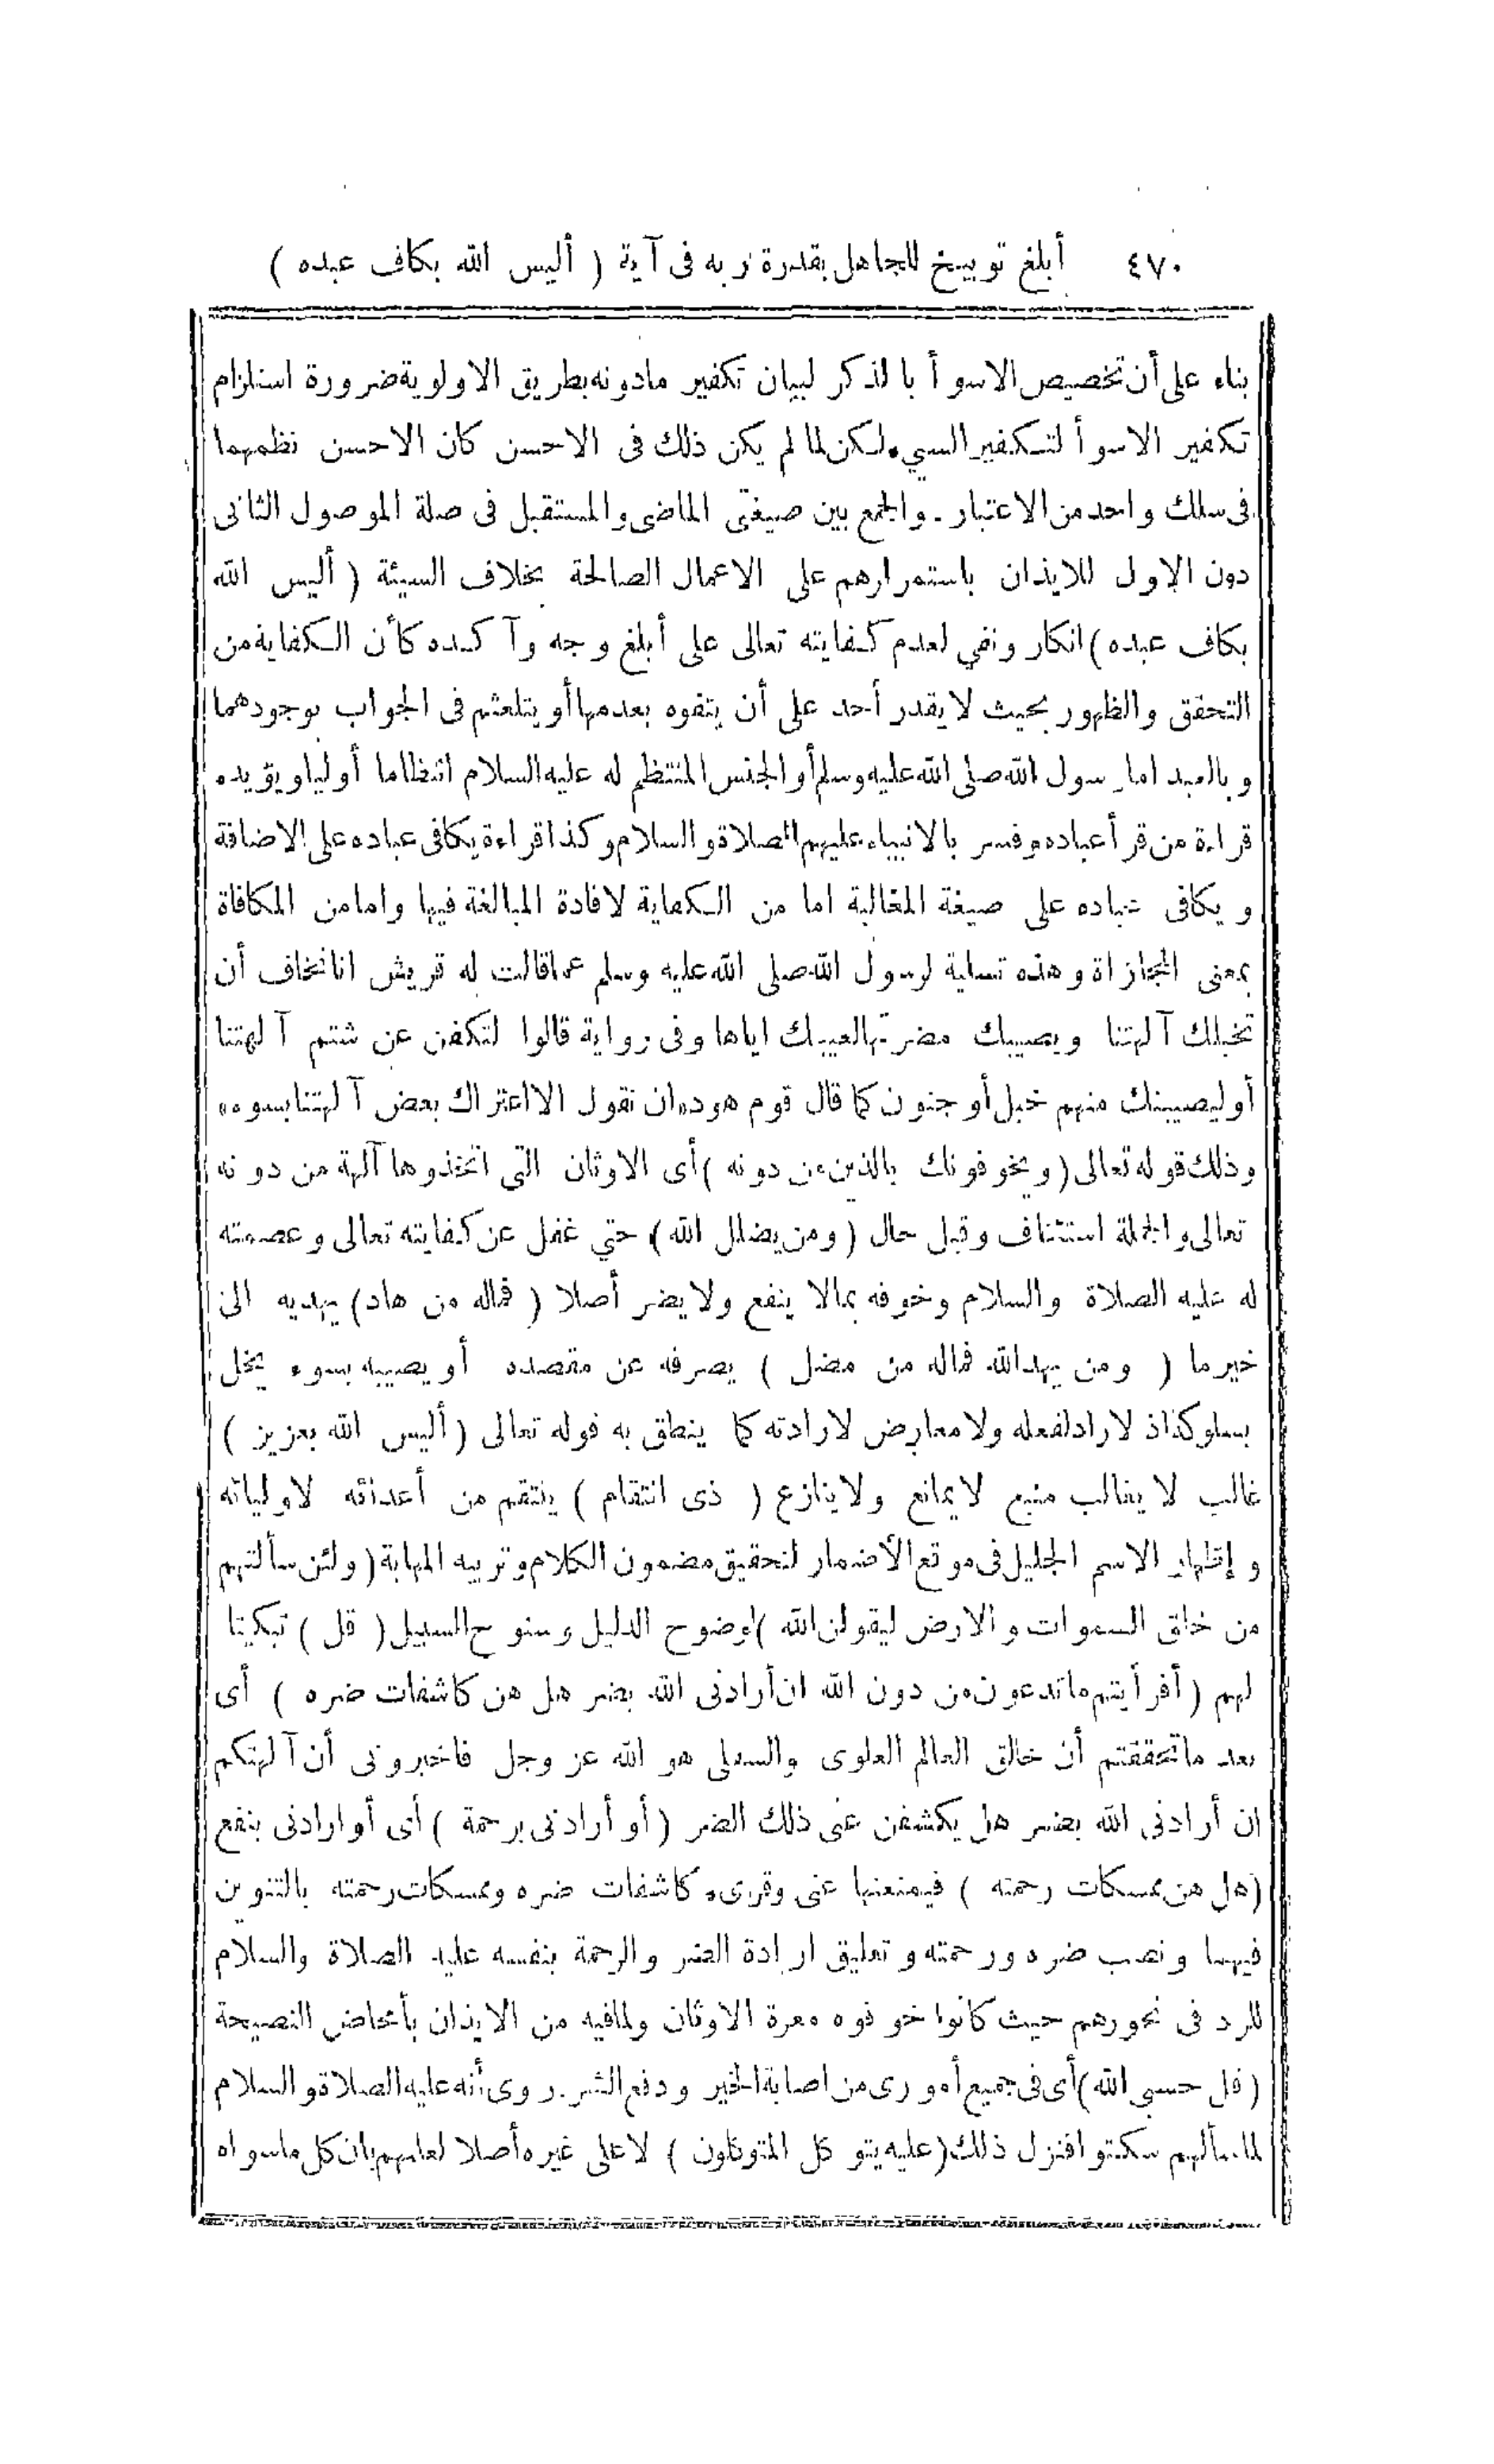 ٤٧٠ أبلغ توبيخ للجاهل بقدرة ربه فى آية ( أليس الله بكاف عبده )
بناء على أن تخصيص الاسوأ بالذكر لبيان تكفير مادونه بطريق الاولوية ضرورة استلزام
تكفير الاسوأ لتكفير السيء لكن لما لم يكن ذلك فى الاحسن كان الاحسن نظمهما
فى سلك واحد من الاعتبار . والجمع بين صيغتى الماضى والمستقبل فى صلة الموصول الثانى
دون الاول للايذان باستمرارهم على الاعمال الصالحة بخلاف السيئة ( أليس الله
بكاف عبده ) انكار ونفي لعدم كفايته تعالى على أبلغ وجه وآكده كأن الكفاية من
التحقق والظهور بحيث لا يقدر أحد على أن يتفوه بعدمها أو يتلعثم فى الجواب بوجودهما
وبالعبد اما رسول الله صلى الله عليه وسلم أو الجنس المنتظم له عليه السلام انتظاما أوليا ويؤيده
قراءة من قرأ عباده وفسر بالانبياء عليهم الصلاة والسلام وكذا قراءة يكافى عباده على الاضافة
ويكافى عباده على صيغة المغالبة اما من الكفاية لافادة المبالغة فيها واما من المكافاة
بمعنى المجازاة وهذه تسلية لرسول الله صلى الله عليه وسلم عما قالت له قريش انا نخاف أن
تخبلك آلهتنا ويصيبك مضرتها لعيبك اياها وفى رواية قالوا لتكفن عن شتم آلهتنا
أو ليصيبنك منهم خبل أو جنون كما قال قوم هود ان نقول الا اعتراك بعض آلهتنا بسوء
وذلك قوله تعالى ( ويخوفونك بالذين من دونه ) أى الاوثان التى اتخذوها آلهة من دونه
تعالى والجملة استئناف وقيل حال ( ومن يضلل الله ) حتي غفل عن كفايته تعالى وعصمته
له عليه الصلاة والسلام وخوفه بمالا ينفع ولا يضر أصلا ( فماله من هاد ) يهديه الى
خير ما ( ومن يهد الله فماله من مضل ) يصرفه عن مقصده أو يصيبه بسوء يخل
بسلوكه اذ لا راد لفعله ولا معارض لارادته كما ينطق به قوله تعالى ( أليس الله بعزيز )
غالب لا يغالب منيع لا يمانع ولا ينازع ( ذى انتقام ) ينتقم من أعدائه لاوليائه
وإظهار الاسم الجليل فى موقع الأضمار لتحقيق مضمون الكلام وتربية المهابة ( ولئن سألتهم
من خلق السموات والارض ليقولن الله ) لوضوح الدليل وسنوح السبيل ( قل ) تبكيتا
لهم ( أفرأيتم ما تدعون من دون الله ان أرادنى الله بضر هل هن كاشفات ضره ) أى
بعد ما تحققتم أن خالق العالم العلوى والسفلى هو الله عز وجل فاخبرونى أن آلهتكم
ان أرادنى الله بضر هل يكشفن عنى ذلك الضر ( أو أرادنى برحمة ) أى أو ارادنى بنفع
( هل هن ممسكات رحمته ) فيمنعنها عنى وقرىء كاشفات ضره وممسكات رحمته بالتنوين
فيهما ونصب ضره ورحمته وتعليق ارادة الضر والرحمة بنفسه عليه الصلاة والسلام
للرد فى نحورهم حيث كانوا خوفوه معرة الاوثان ولما فيه من الايذان بأمحاض النصيحة
( قل حسبي الله ) أى فى جميع أمورى من اصابة الخير ودفع الشر . روى أنه عليه الصلاة والسلام
لما سألهم سكتوا فنزل ذلك ( عليه يتوكل المتوكلون ) لا على غيره أصلا لعلمهم بان كل ماسواه